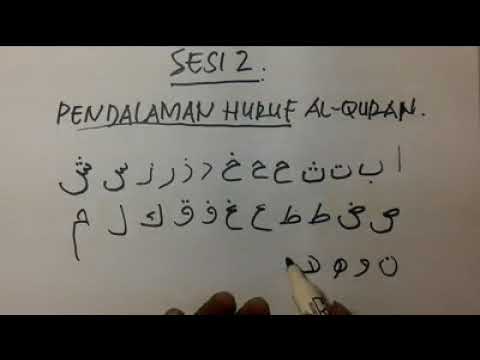 SESI 2.
PENDALAMAN HURUF AL-QURAN.
ا ب ت ث ج ح خ د ذ ر ز س ش
ص ض ط ظ ع غ ف ق ك ل م
ن و ه